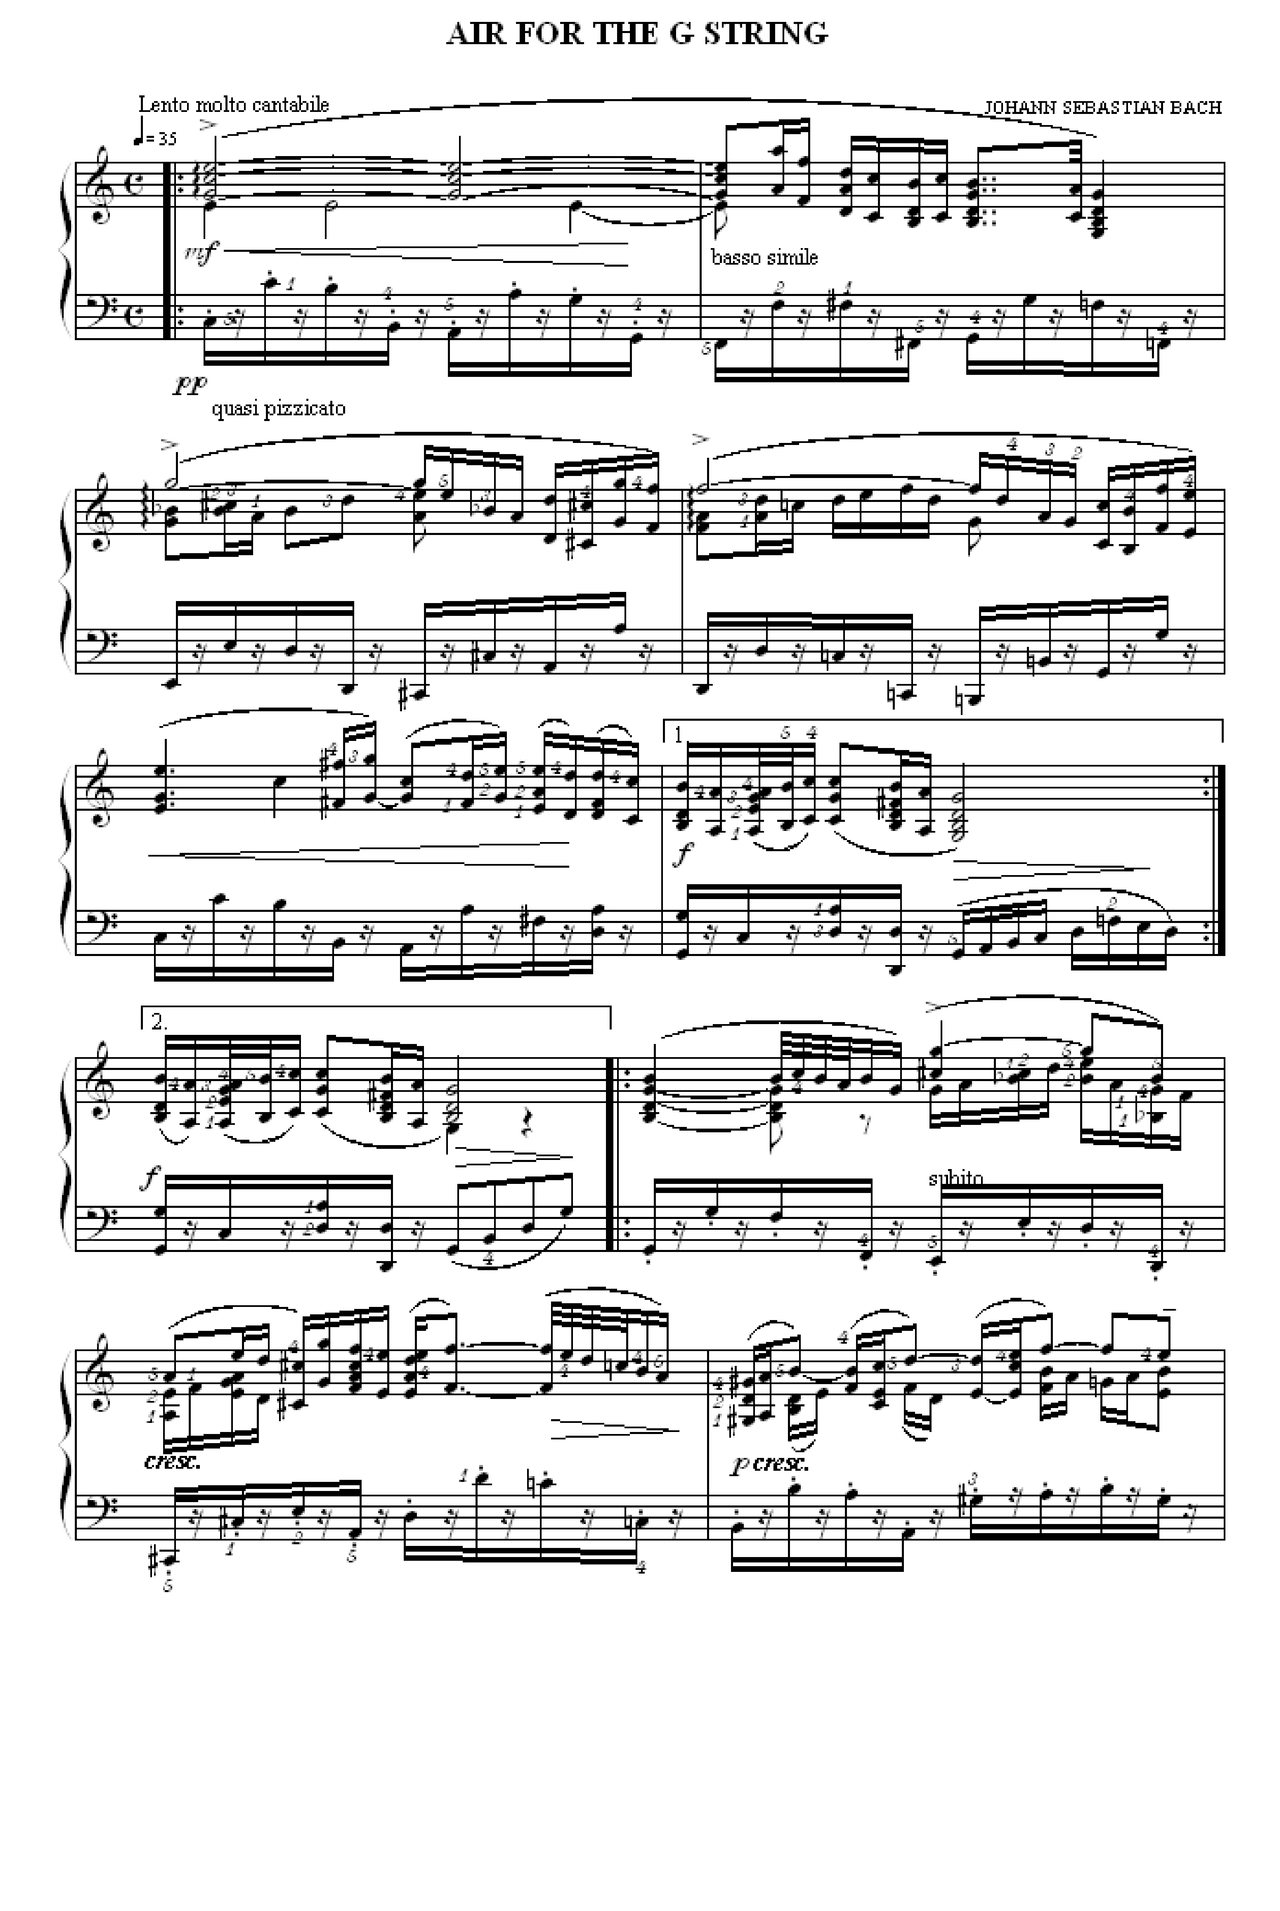 AIR FOR THE G STRING
Lento molto cantabile
JOHANN SEBASTIAN BACH
= 35
mf
basso simile
pp
quasi pizzicato
1.
f
2.
f
subito
cresc.
p cresc.